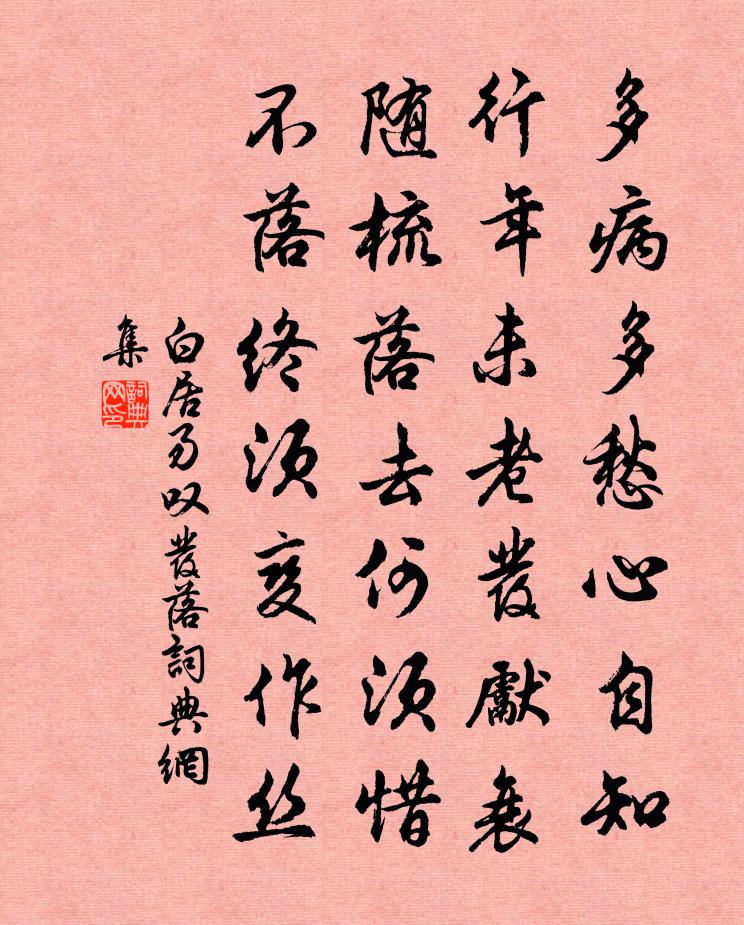 多病多愁心自知
行年未老發獻衰
随梳落去何须惜
不落终须变作丝
白居易叹發落詞典網
集
詞典
网印